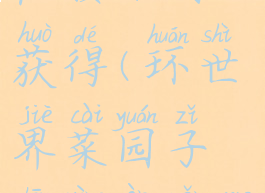 huò dé huán shì
获得(环世
jiè cài yuán zǐ
界菜园子